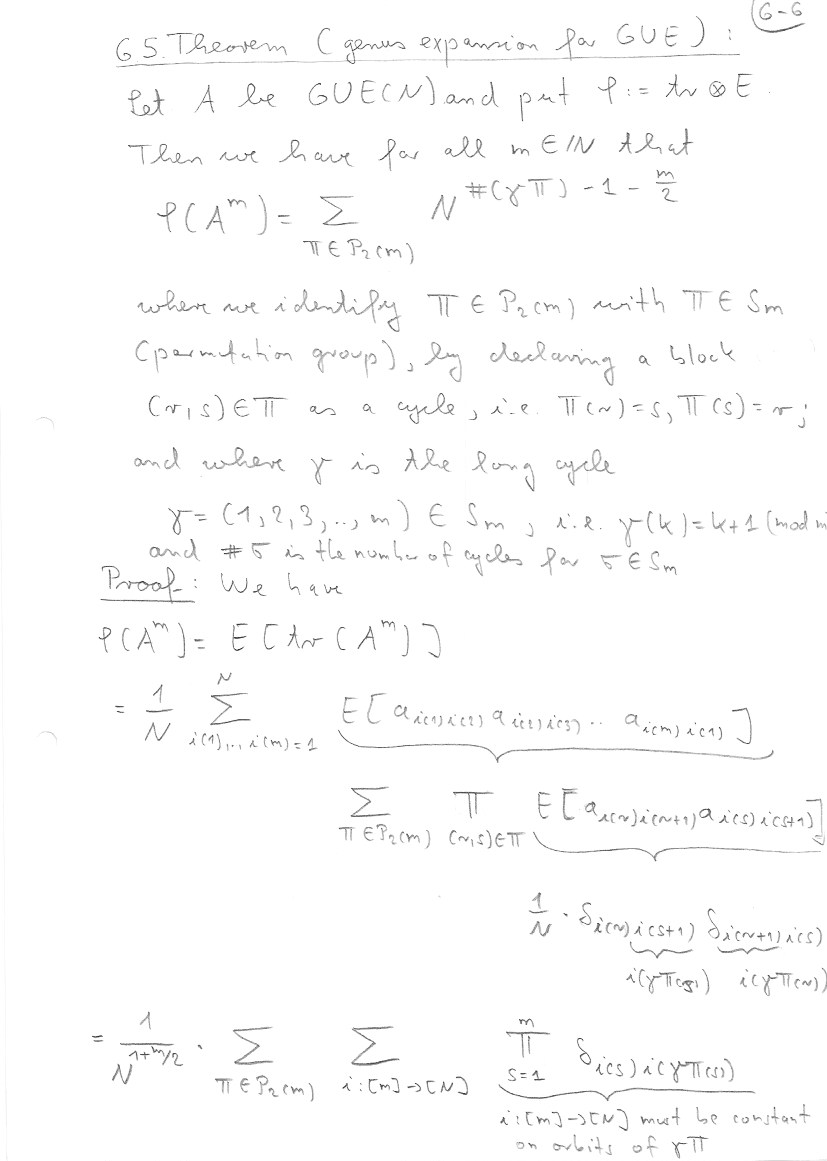 6-6
6 5. Theorem (genus expansion for GUE):
Let A be GUE(N) and put φ := tr ⊗ E.
Then we have for all m ∈ ℕ that
φ(A^m) = Σ_{π ∈ P_2(m)} N^{#(γπ) - 1 - m/2}
where we identify π ∈ P_2(m) with π ∈ S_m
(permutation group), by declaring a block
(r,s) ∈ π as a cycle, i.e. π(r)=s, π(s)=r;
and where γ is the long cycle
γ = (1,2,3,..,m) ∈ S_m, i.e. γ(k)=k+1 (mod m
and #σ is the number of cycles for σ ∈ S_m
Proof: We have
φ(A^m) = E[tr(A^m)]
= 1/N Σ_{i(1),.., i(m)=1}^N E[a_{i(1)i(2)} a_{i(2)i(3)} .. a_{i(m)i(1)}]
Σ_{π ∈ P_2(m)} Π_{(r,s)∈π} E[a_{i(r)i(r+1)} a_{i(s)i(s+1)}]
1/N · δ_{i(r)i(s+1)} δ_{i(r+1)i(s)}
i(γπ(r)) i(γπ(s))
= 1/N^{1+m/2} · Σ_{π ∈ P_2(m)} Σ_{i:[m]→[N]} Π_{s=1}^m δ_{i(s) i(γπ(s))}
i:[m]→[N] must be constant
on orbits of γπ